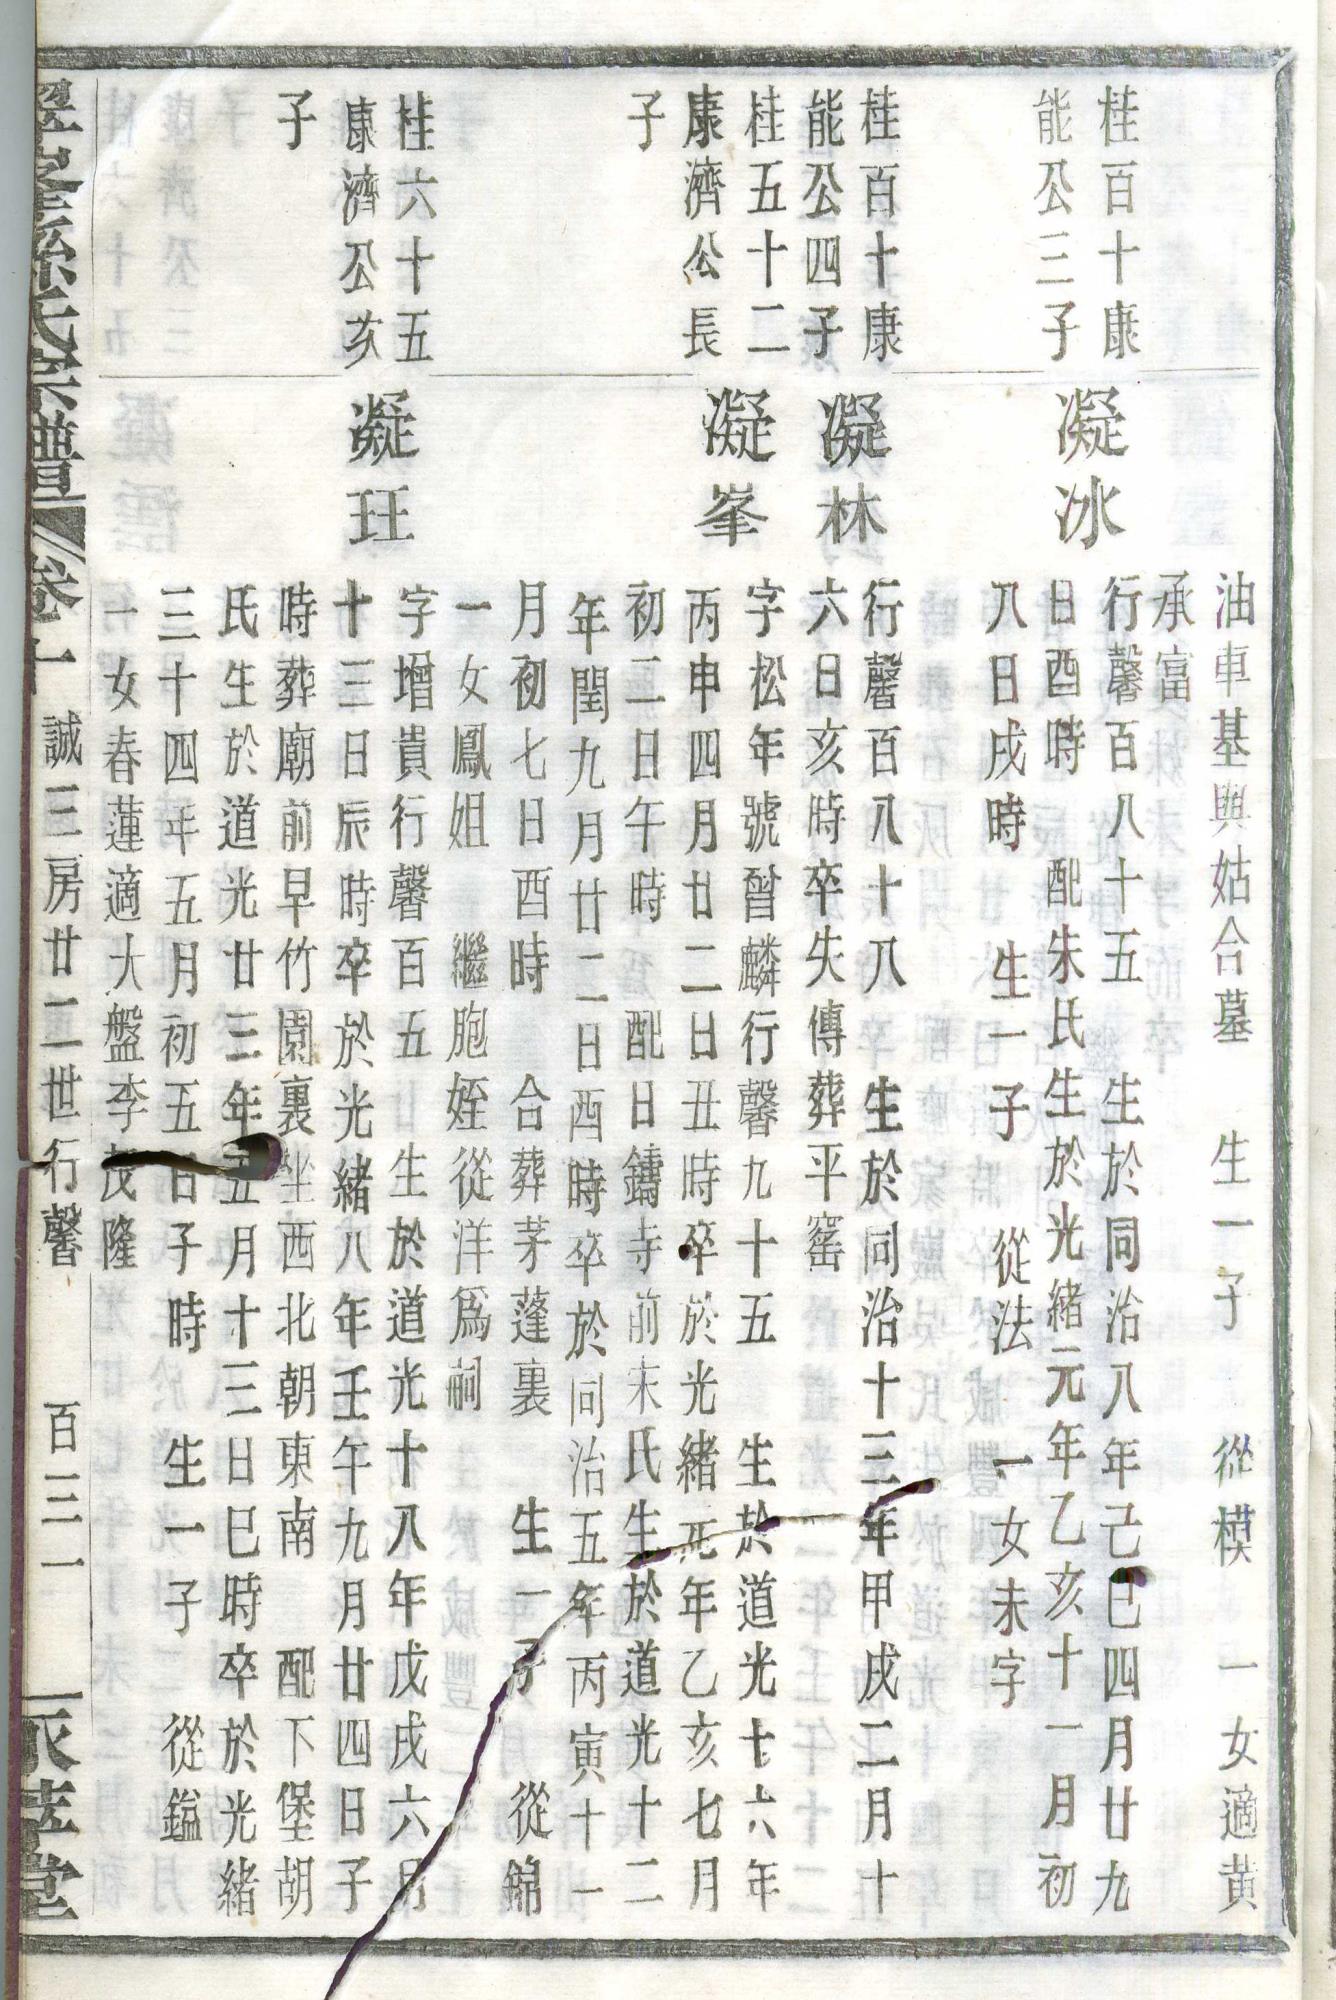 油車基與姑合墓 生一子 從模 一女適黃
承富
桂百十康
能公三子
凝冰
行馨百八十五 生於同治八年己巳四月廿九
日酉時 配朱氏生於光緒元年乙亥十一月初
八日戌時 生一子 從法 一女未字
桂百十康
能公四子
凝林
行馨百八十八 生於同治十三年甲戌二月十
六日亥時卒失傳葬平窰
桂五十二
康濟公長
子
凝峯
字松年號曾麟行馨九十五 生於道光十六年
丙申四月廿二日丑時卒於光緒元年乙亥七月
初二日午時 配日鑄寺前宋氏生於道光十二
年閏九月廿二日酉時卒於同治五年丙寅十一
月初七日酉時 合葬茅蓬裏 生一子 從錦
一女鳳姐 繼胞姪從洋為嗣
桂六十五
康濟公亥
子
凝玨
字增貴行馨百五 生於道光十八年戊戌六月
十三日辰時卒於光緒八年壬午九月廿四日子
時葬廟前早竹園裏坐西北朝東南 配下堡胡
氏生於道光廿三年五月十三日巳時卒於光緒
三十四年五月初五日子時 生一子 從鎰
一女春蓮適大盤李茂隆
孫氏宗譜 卷十 誠三房廿二世行馨 百三一 堂